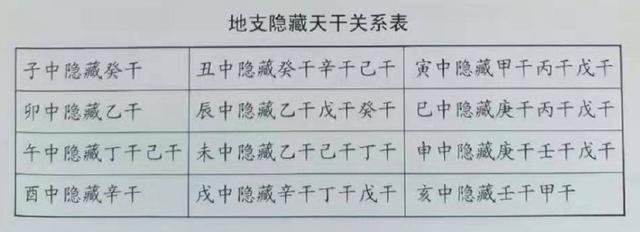 地支隐藏天干关系表
子中隐藏癸干 丑中隐藏癸干辛干己干 寅中隐藏甲干丙干戊干
卯中隐藏乙干 辰中隐藏乙干戊干癸干 巳中隐藏庚干丙干戊干
午中隐藏丁干己干 未中隐藏乙干己干丁干 申中隐藏庚干壬干戊干
酉中隐藏辛干 戌中隐藏辛干丁干戊干 亥中隐藏壬干甲干